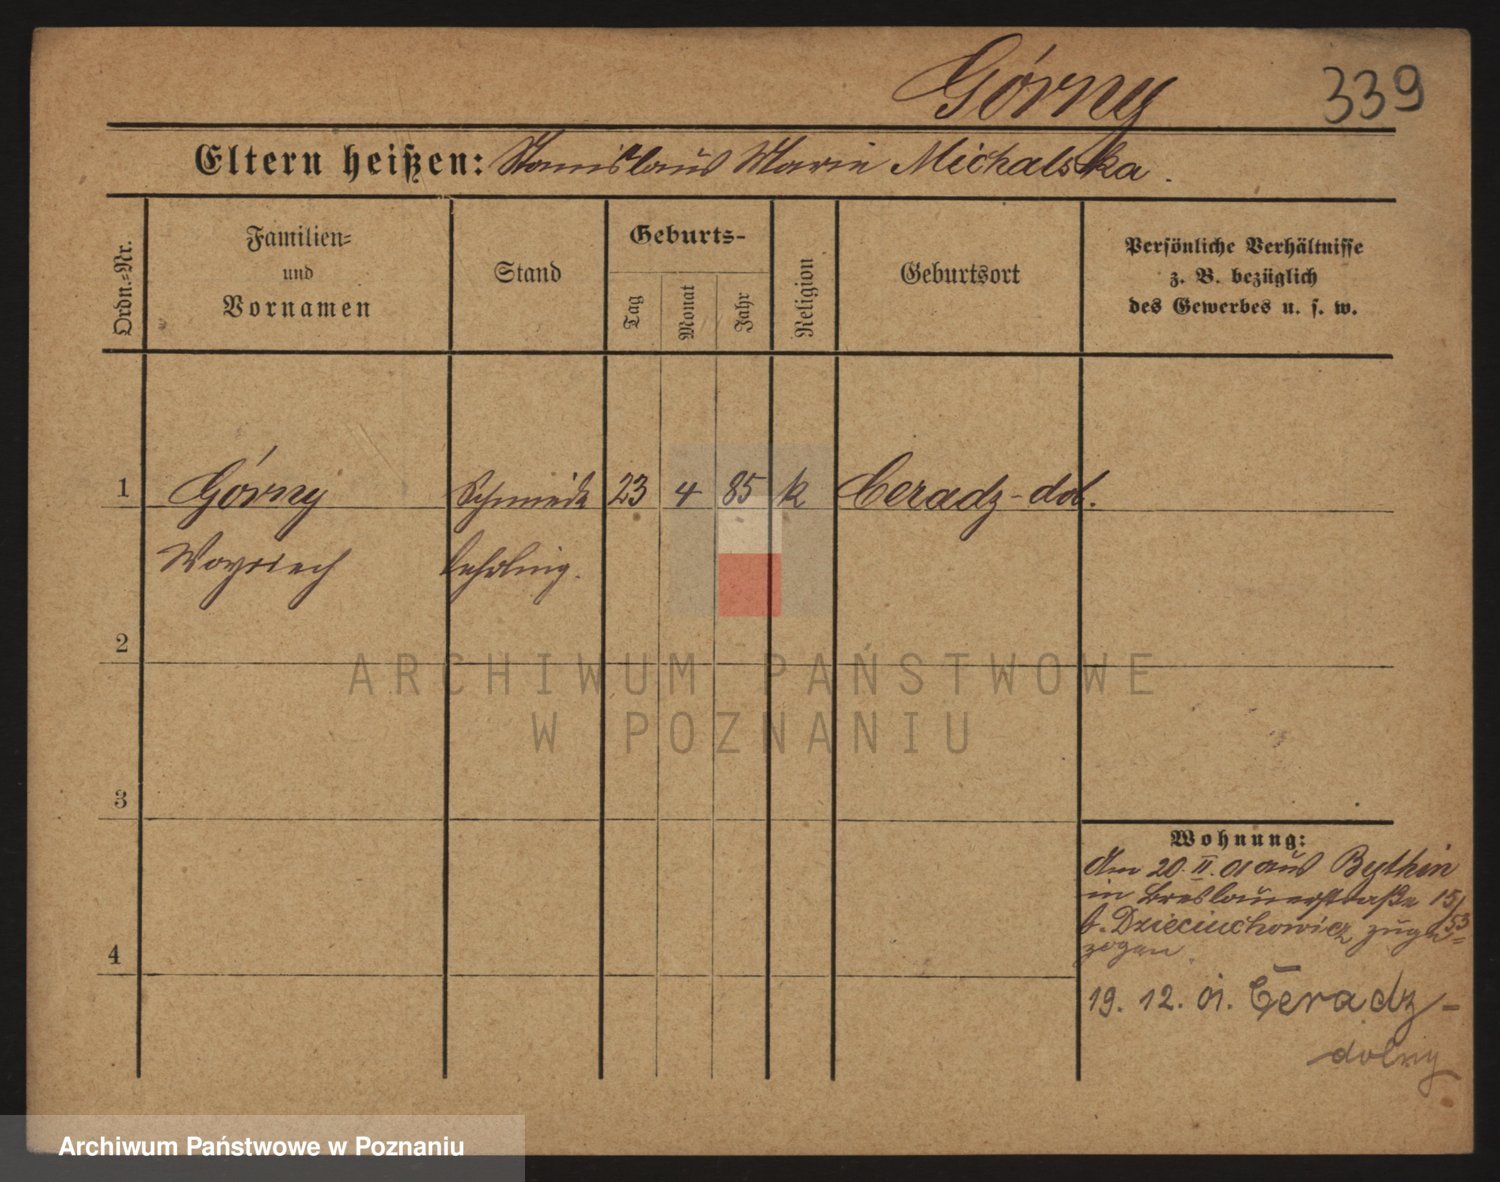 Górny 339
Eltern heißen: Stanislaus Marie Michalska.
Ordn.-Nr.
Familien-
und
Vornamen
Stand
Geburts-
Tag
Monat
Jahr
Religion
Geburtsort
Persönliche Verhältnisse
z. B. bezüglich
des Gewerbes u. s. w.
1 Górny Schmiede 23 4 85 k Ceradz-dol.
Woyciech Lehrling.
2
ARCHIWUM PAŃSTWOWE
W POZNANIU
3
Wohnung:
Am 20. II. 01 aus Bythin
in Breslauerstraße 15/53
b. Dzieciuchowicz zuge=
zogen.
4
19. 12. 01. Ceradz-
dolny
Archiwum Państwowe w Poznaniu